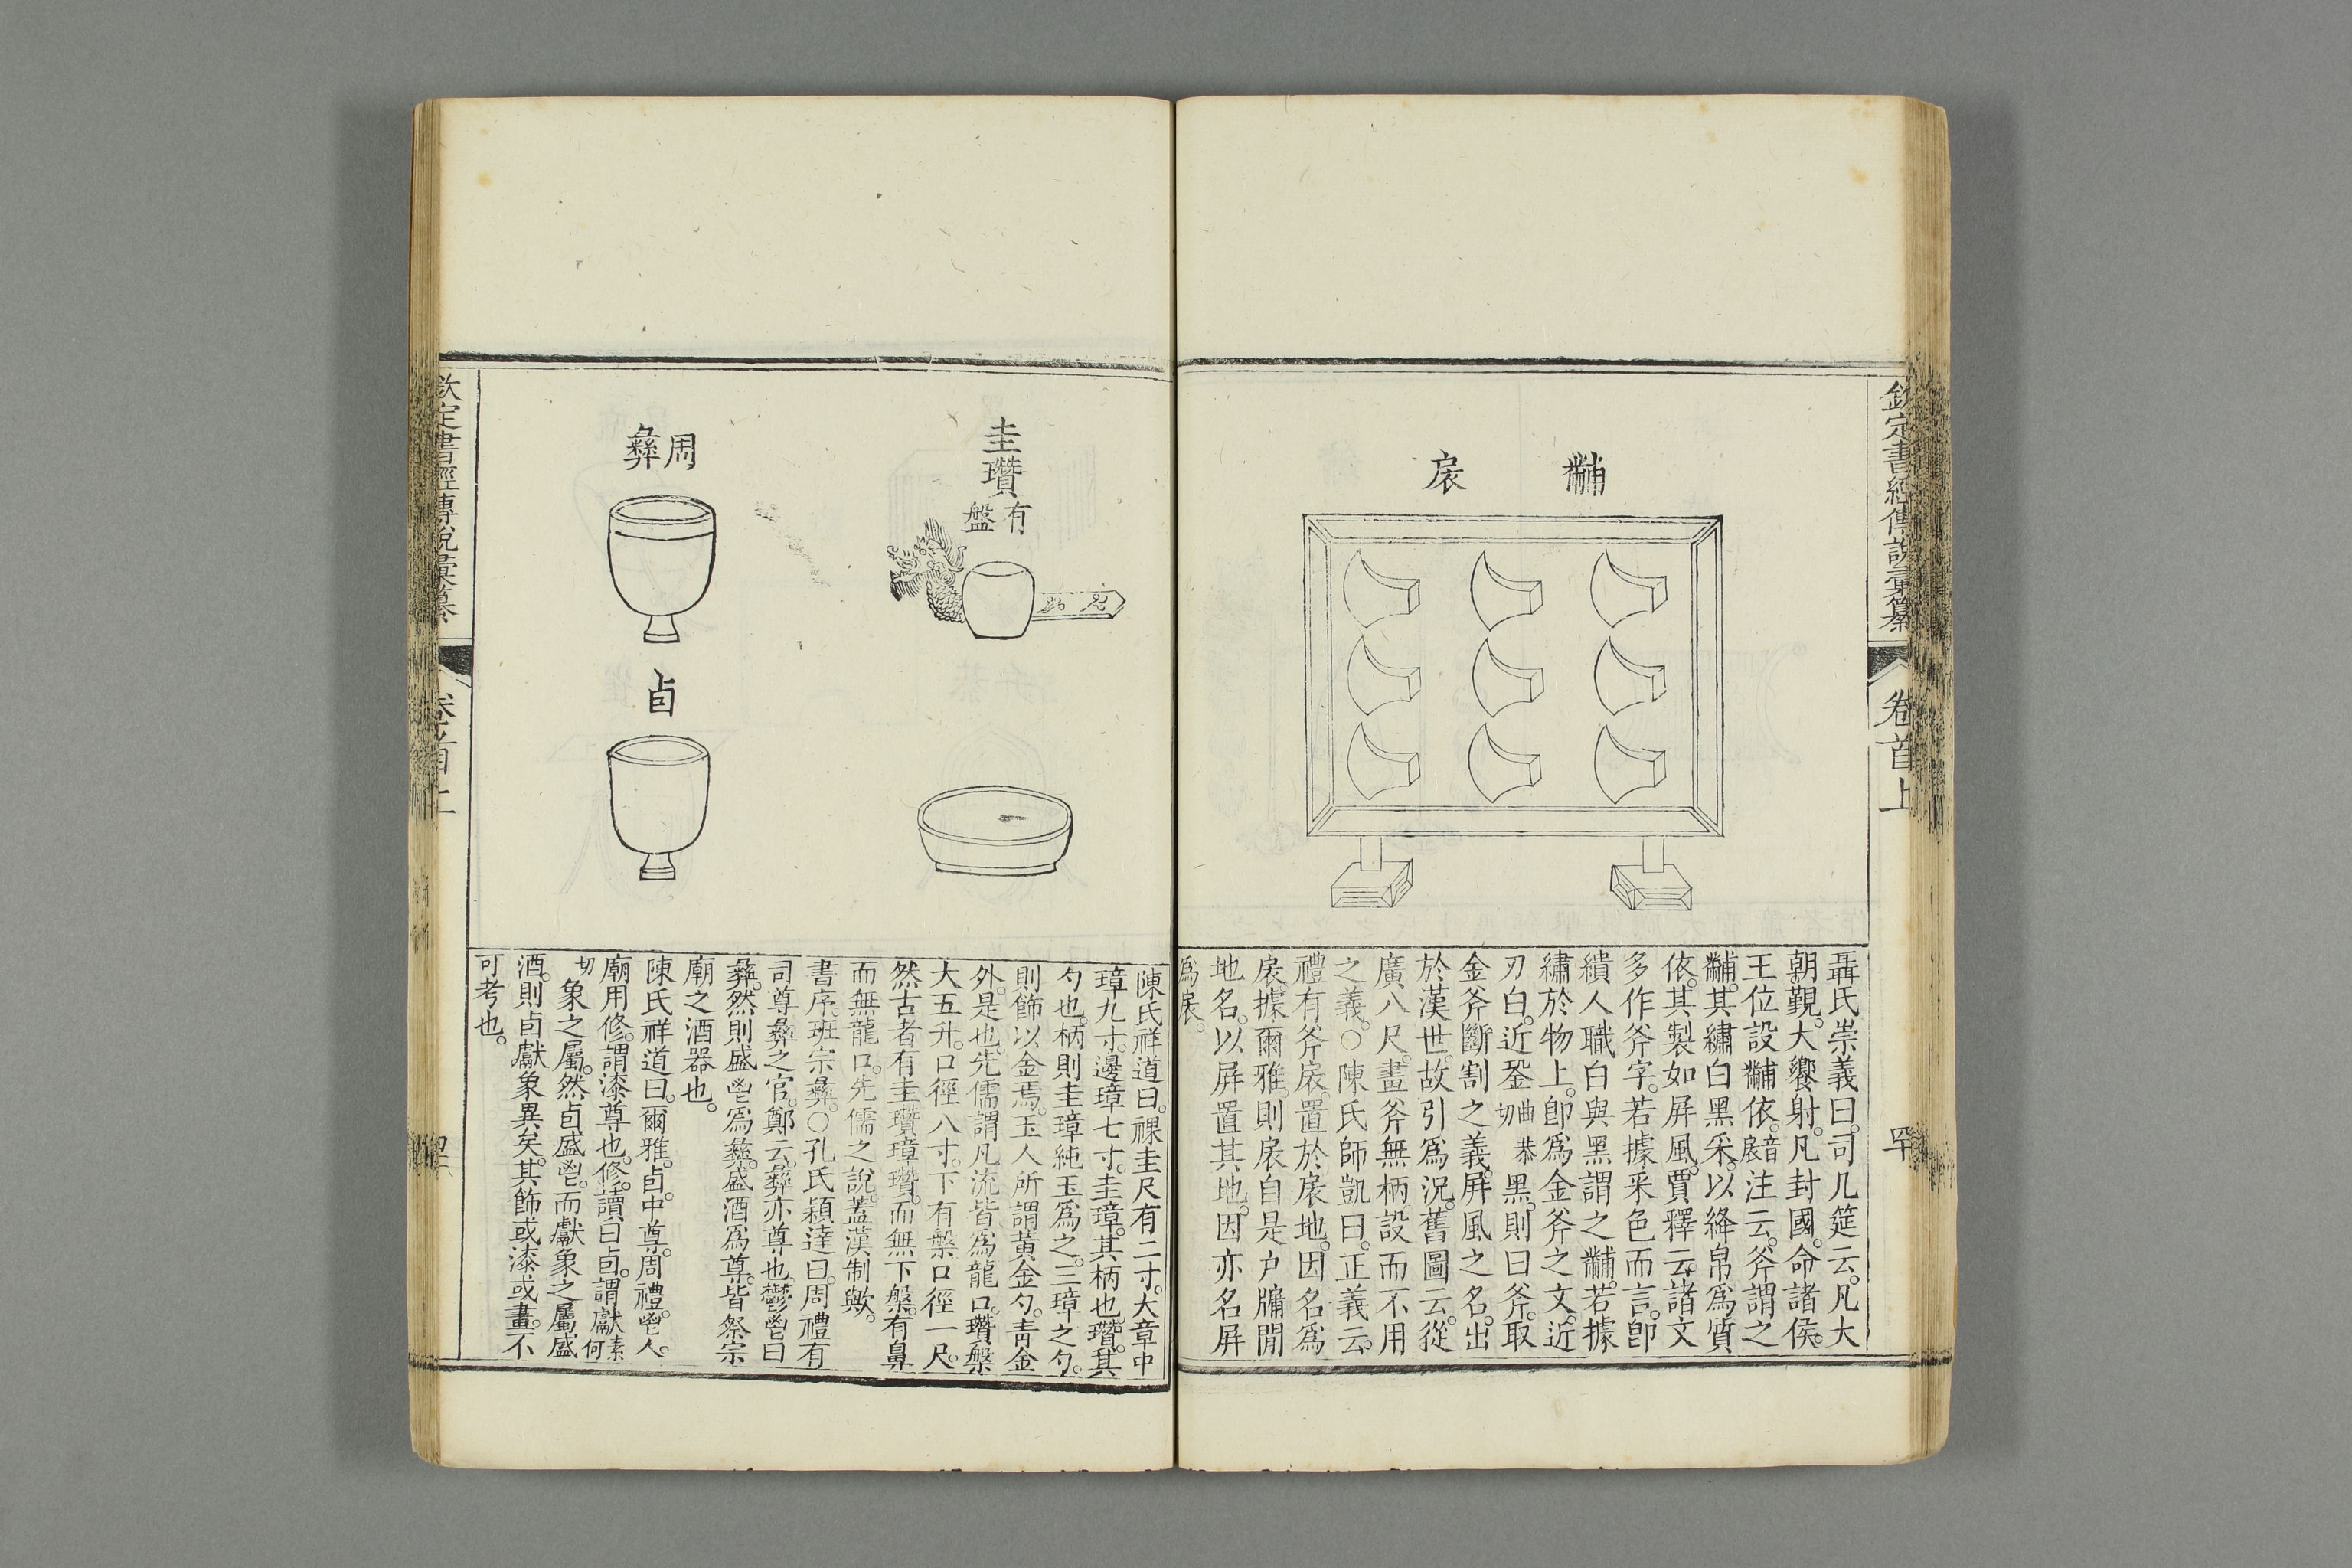 欽定書經傳說彙纂
卷首上
黼
扆
聶氏崇義曰司几筵云凡大
朝覲大饗射凡封國命諸侯
王位設黼依扆音注云斧謂之
黼其繡白黑采以絳帛爲質
依其製如屏風賈釋云諸文
多作斧字若據采色而言卽
繢人職白與黑謂之黼若據
繡於物上卽爲金斧之文近
刃白近銎曲恭切黑則曰斧取
金斧斷割之義屏風之名出
於漢世故引爲況舊圖云從
廣八尺畫斧無柄設而不用
之義○陳氏師凱曰正義云
禮有斧扆置於扆地因名爲
扆據爾雅則扆自是户牖閒
地名以屏置其地因亦名屏
爲扆
圭瓚有盤
周彝
卣
陳氏祥道曰祼圭尺有二寸大章中
璋九寸邊璋七寸圭璋其柄也瓚其
勺也柄則圭璋純玉爲之三璋之勺
則飾以金焉玉人所謂黃金勺靑金
外是也先儒謂凡流皆爲龍口瓚槃
大五升口徑八寸下有槃口徑一尺
然古者有圭瓚璋瓚而無下槃有鼻
而無龍口先儒之說蓋漢制歟
書序班宗彝○孔氏穎達曰周禮有
司尊彝之官鄭云彝亦尊也鬱鬯曰
彝然則盛鬯爲彝盛酒爲尊皆祭宗
廟之酒器也
陳氏祥道曰爾雅卣中尊周禮鬯人
廟用修謂漆尊也修讀曰卣謂獻素何
切象之屬然卣盛鬯而獻象之屬盛
酒則卣獻象異矣其飾或漆或畫不
可考也
欽定書經傳說彙纂
卷首上